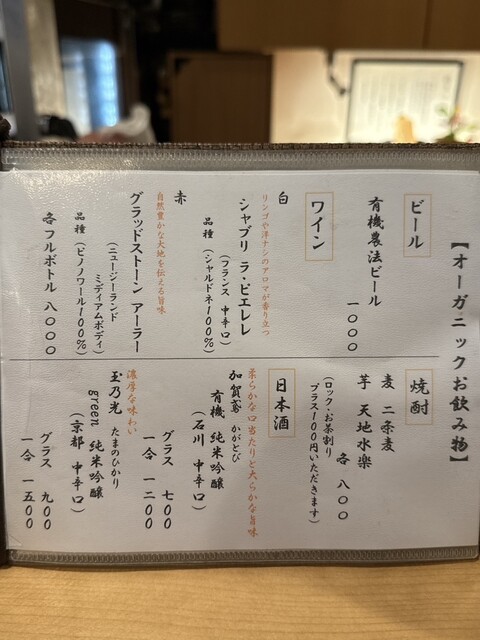 【オーガニックお飲み物】
ビール
有機農法ビール
一〇〇〇
ワイン
白
リンゴや洋ナシのアロマが香り立つ
シャブリ ラ・ピエレレ
(フランス 中辛口)
品種 (シャルドネ100%)
赤
自然豊かな大地を伝える旨味
グラッドストーン アーラー
(ニュージーランド
ミディアムボディ)
品種
(ピノノワール100%)
各フルボトル 八〇〇〇
焼酎
麦 二条麦
芋 天地水楽
各 八〇〇
(ロック・お茶割り
プラス100円いただきます)
日本酒
柔らかな口当たりと大らかな旨味
加賀鳶 かがとび
有機 純米吟醸
(石川 中辛口)
グラス 七〇〇
一合 一二〇〇
濃厚な味わい
玉乃光 たまのひかり
green 純米吟醸
(京都 中辛口)
グラス 九〇〇
一合 一五〇〇